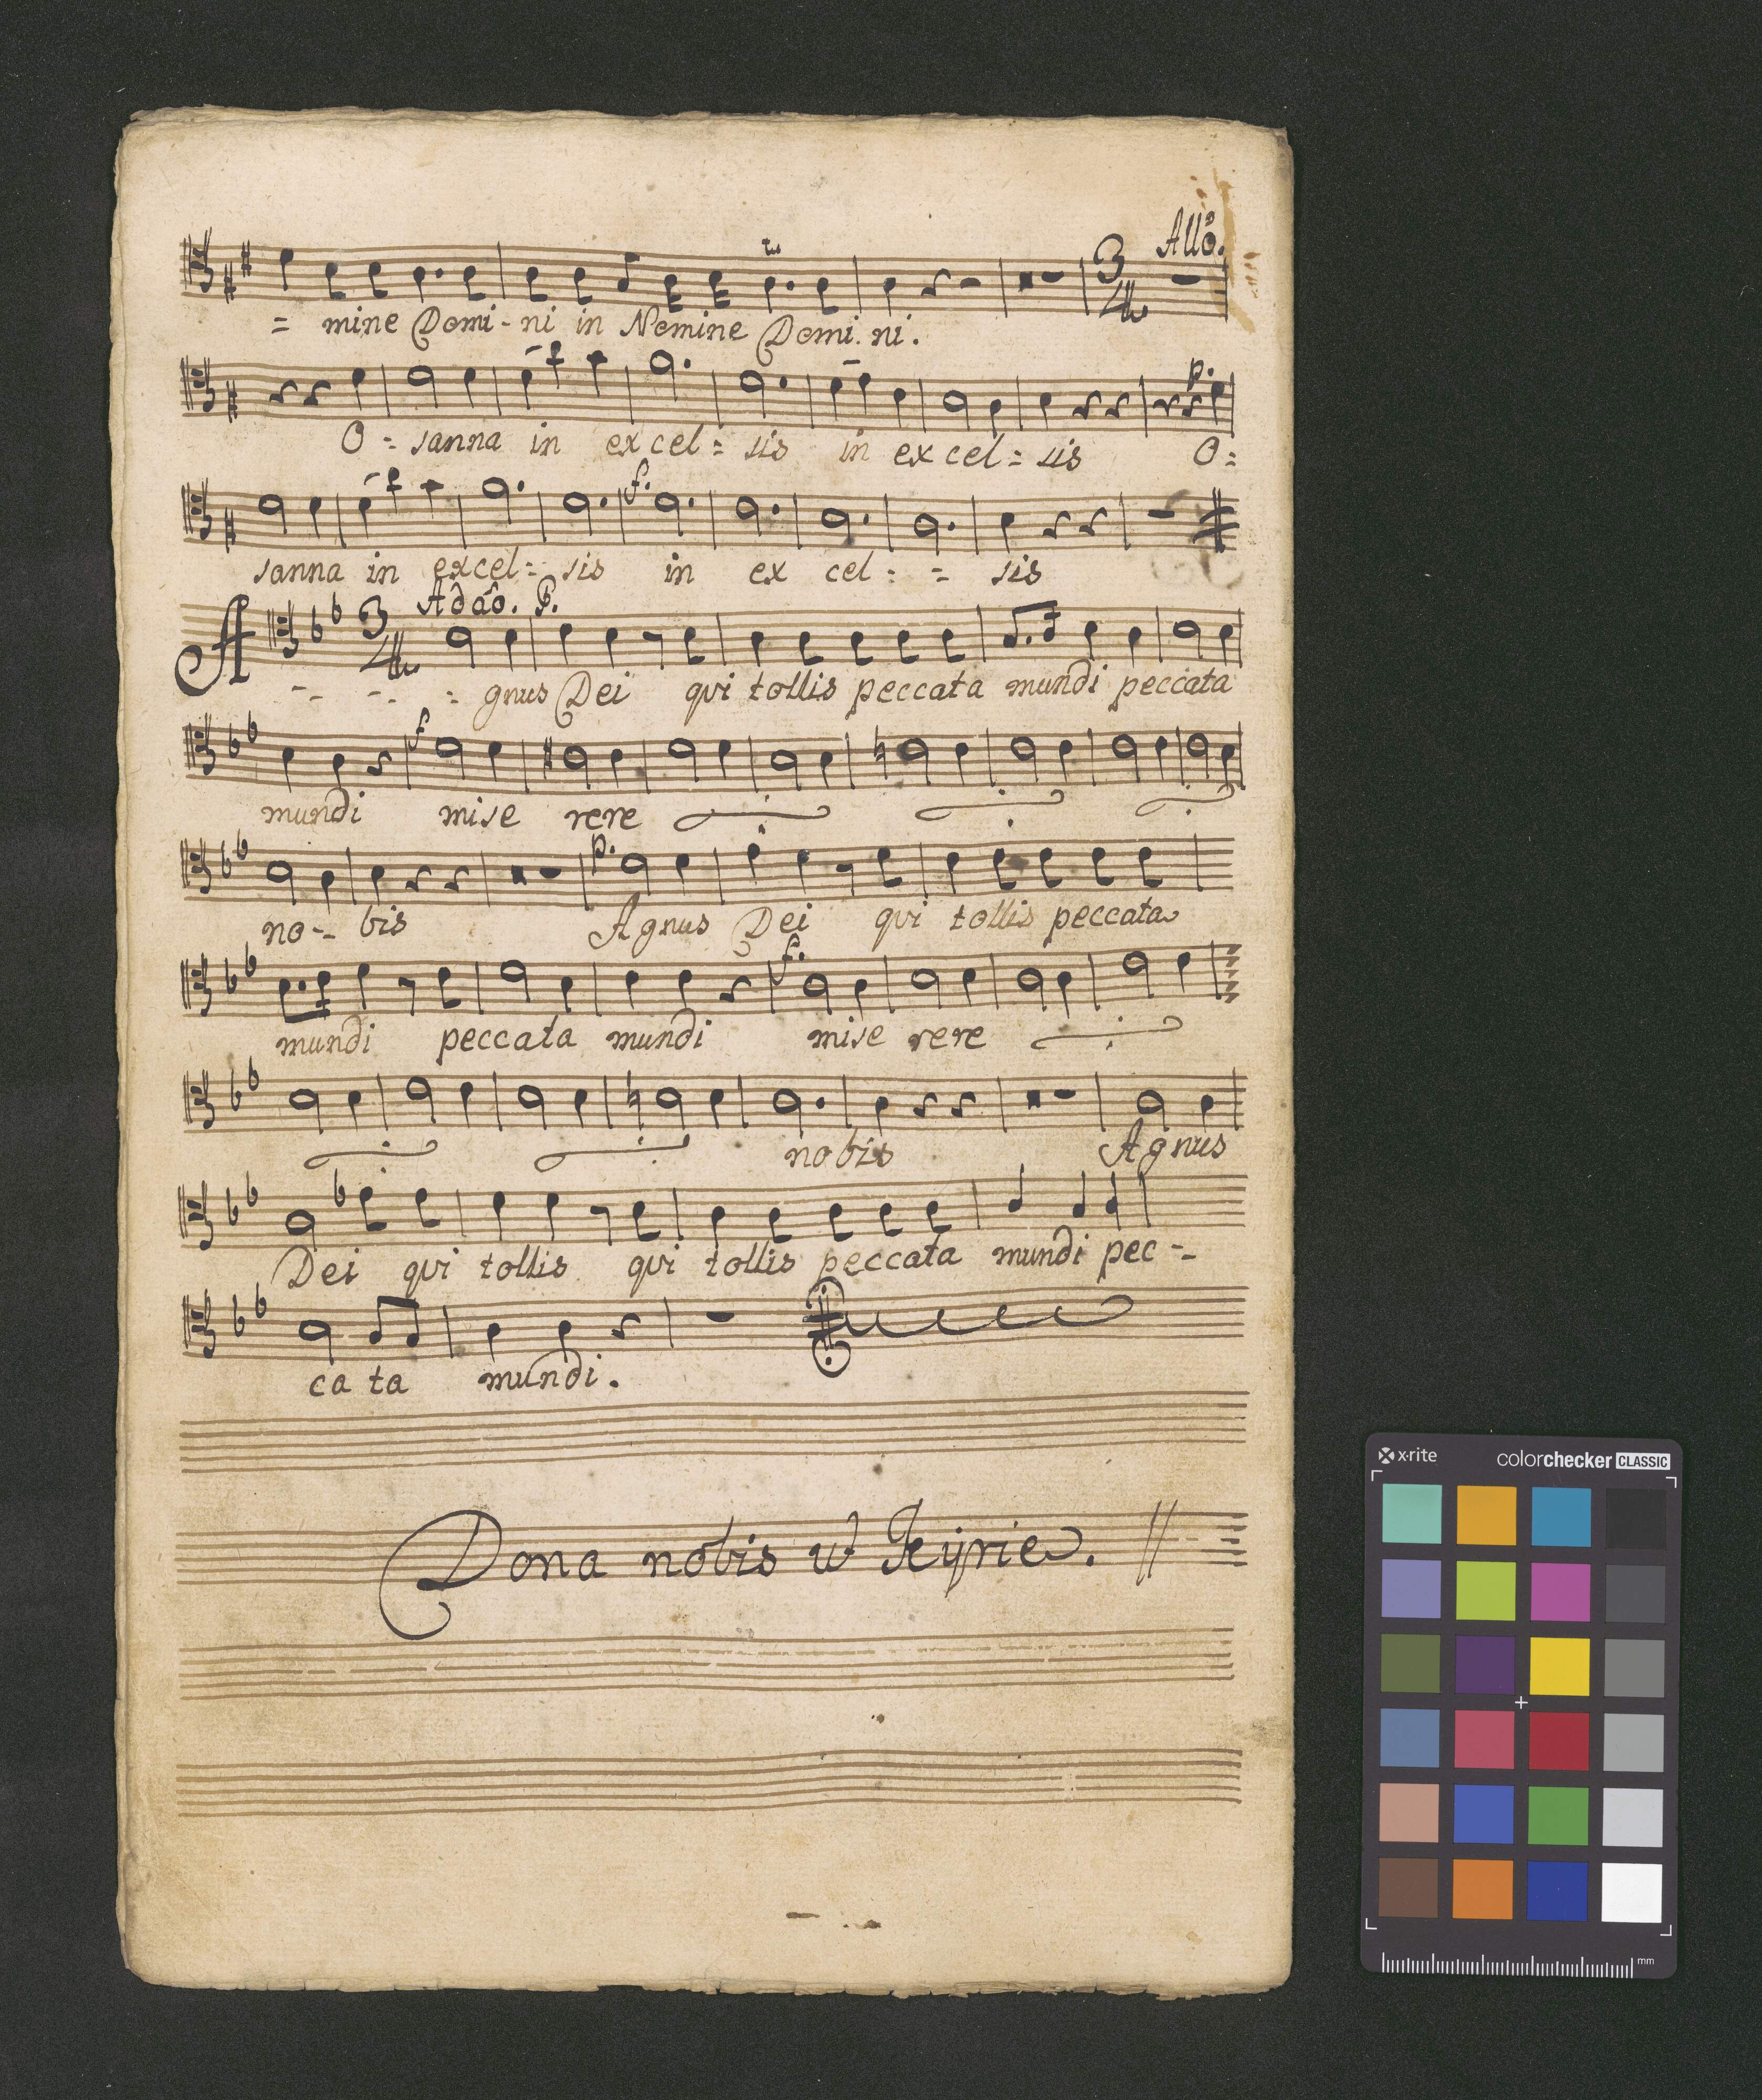 Allo.
= mine Domi - ni in Nomine Domi. ni.
p.
O - sanna in excel = sis in excel = sis O =
f.
sanna in excel = sis in ex cel = = sis
Adao. P.
A - - - - = gnus Dei qui tollis peccata mundi peccata
f
mundi mise rere
p.
no - - bis Agnus Dei qui tollis peccata
f.
mundi peccata mundi mise rere
nobis Agnus
Dei qui tollis qui tollis peccata mundi pec - -
ca ta mundi.
Dona nobis ut Kyrie. //
x-rite colorchecker CLASSIC
mm